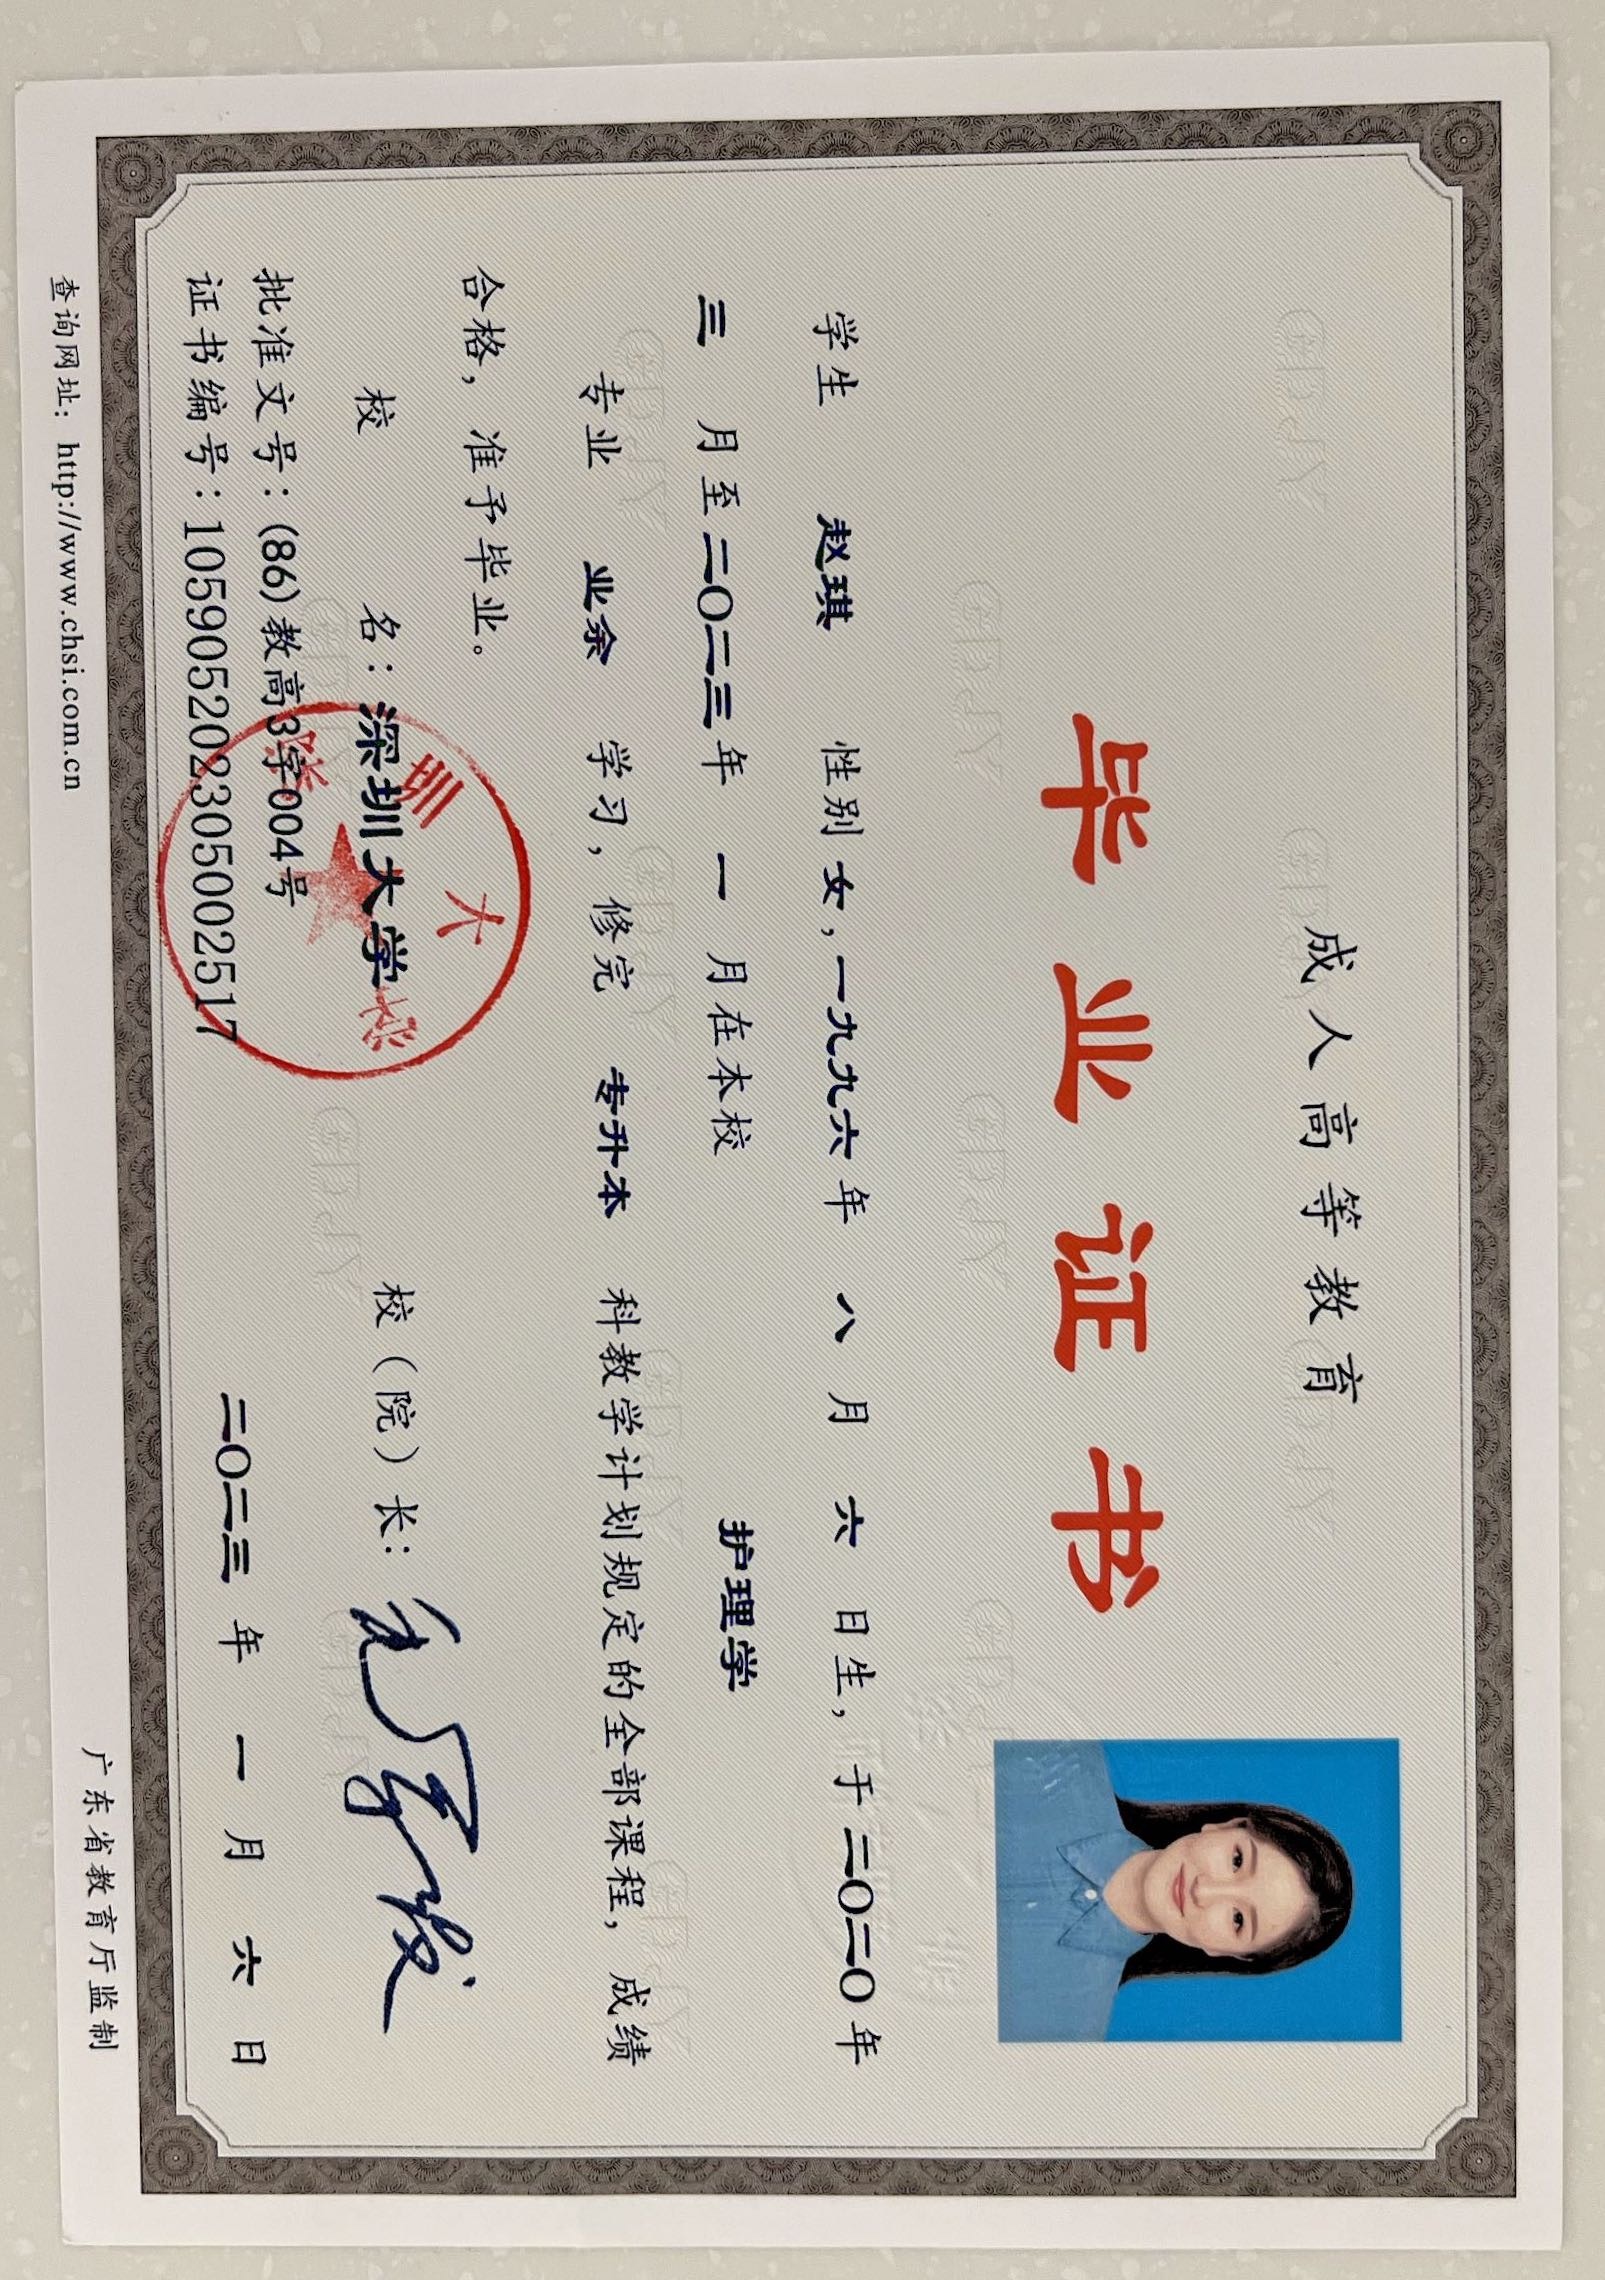 成人高等教育
毕业证书
学生 赵琪 性别 女，一九九六年 八 月 六 日生，于二〇二〇年
三 月至二〇二三年 一 月在本校 护理学
专业 业余 学习，修完 专升本 科教学计划规定的全部课程，成绩
合格，准予毕业。
校 名：深圳大学 校（院）长：
批准文号：(86)教高3字004号
证书编号：105905202305002517 二〇二三 年 一 月 六 日
查询网址：http://www.chsi.com.cn 广东省教育厅监制